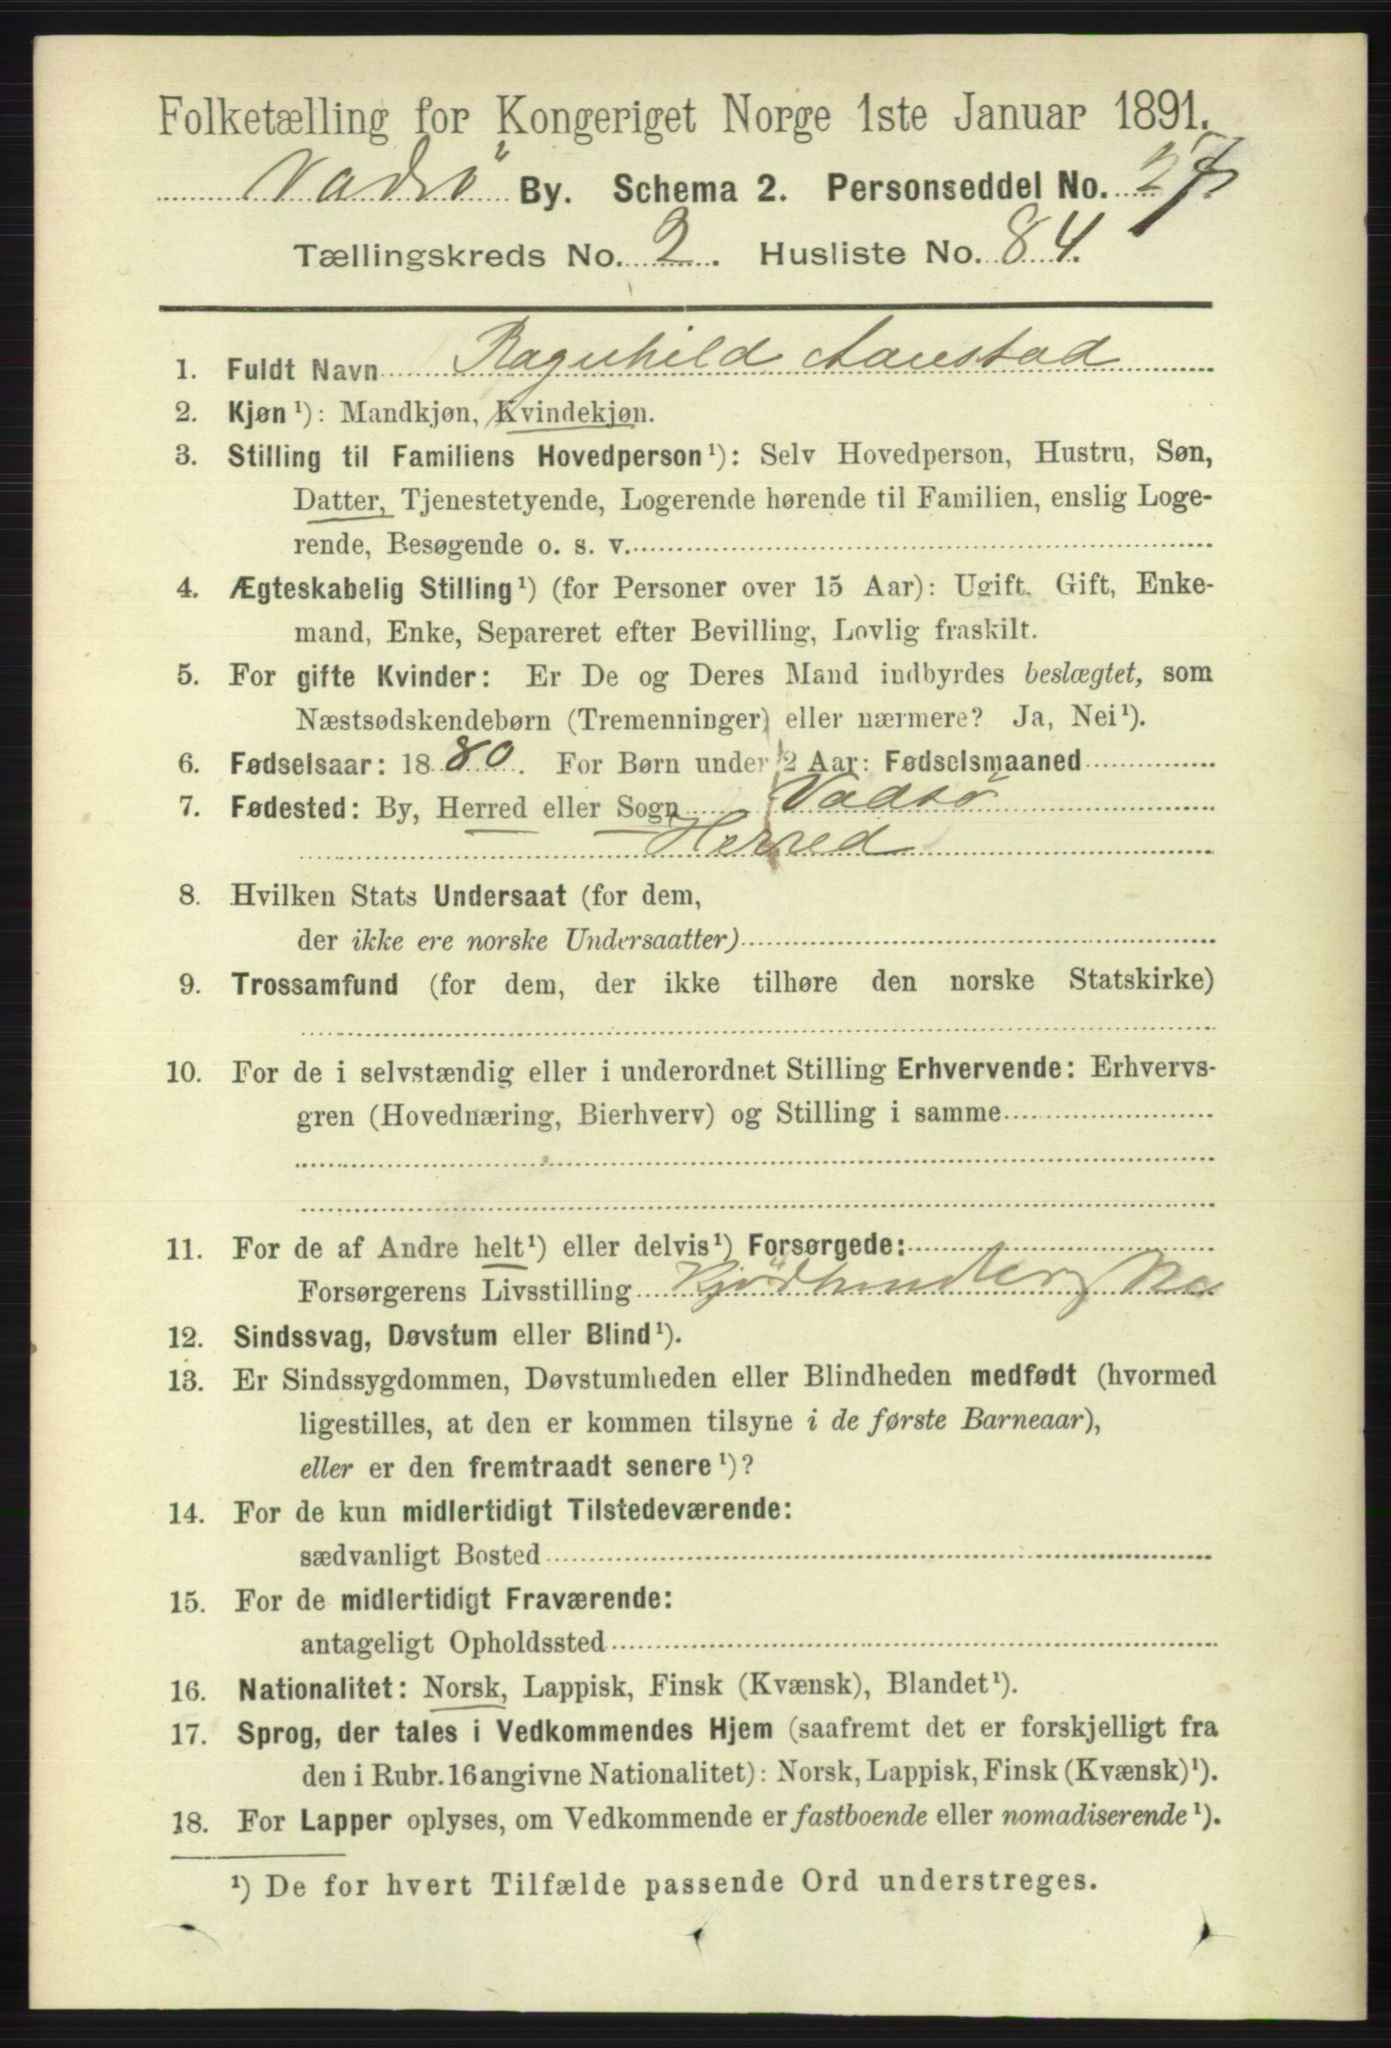 Folketælling for Kongeriget Norge 1ste Januar 1891.
Vadsö By. Schema 2. Personseddel No. 27
Tællingskreds No. 2. Husliste No. 84.
1. Fuldt Navn Ragnhild Aanestad
2. Kjøn ¹): Mandkjøn, Kvindekjøn.
3. Stilling til Familiens Hovedperson¹): Selv Hovedperson, Hustru, Søn,
Datter, Tjenestetyende, Logerende hørende til Familien, enslig Loge-
rende, Besøgende o. s. v.
4. Ægteskabelig Stilling¹) (for Personer over 15 Aar): Ugift, Gift, Enke-
mand, Enke, Separeret efter Bevilling, Lovlig fraskilt.
5. For gifte Kvinder: Er De og Deres Mand indbyrdes beslægtet, som
Næstsødskendebørn (Tremenninger) eller nærmere? Ja, Nei¹).
6. Fødselsaar: 1880. For Børn under 2 Aar: Fødselsmaaned
7. Fødested: By, Herred eller Sogn Vadsö
Herred
8. Hvilken Stats Undersaat (for dem,
der ikke ere norske Undersaatter)
9. Trossamfund (for dem, der ikke tilhøre den norske Statskirke)
10. For de i selvstændig eller i underordnet Stilling Erhvervende: Erhvervs-
gren (Hovednæring, Bierhverv) og Stilling i samme
11. For de af Andre helt¹) eller delvis¹) Forsørgede:
Forsørgerens Livsstilling
12. Sindssvag, Døvstum eller Blind¹).
13. Er Sindssygdommen, Døvstumheden eller Blindheden medfødt (hvormed
ligestilles, at den er kommen tilsyne i de første Barneaar),
eller er den fremtraadt senere¹)?
14. For de kun midlertidigt Tilstedeværende:
sædvanligt Bosted
15. For de midlertidigt Fraværende:
antageligt Opholdssted
16. Nationalitet: Norsk, Lappisk, Finsk (Kvænsk), Blandet¹).
17. Sprog, der tales i Vedkommendes Hjem (saafremt det er forskjelligt fra
den i Rubr. 16 angivne Nationalitet): Norsk, Lappisk, Finsk (Kvænsk)¹).
18. For Lapper oplyses, om Vedkommende er fastboende eller nomadiserende¹).
¹) De for hvert Tilfælde passende Ord understreges.